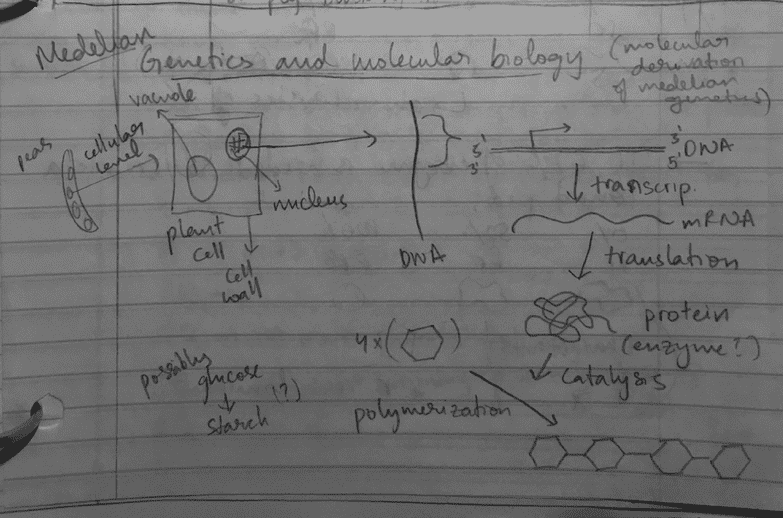 Medelian
Genetics and molecular biology
(molecular
derivation
of medelian
genetics)
vacuole
peas
cellular
level
nucleus
plant
cell
cell
wall
DNA
5'
3'
3'
5'
DNA
transcrip.
mRNA
translation
protein
(enzyme?)
catalysis
4x( )
polymerization
possibly
glucose
(?)
starch